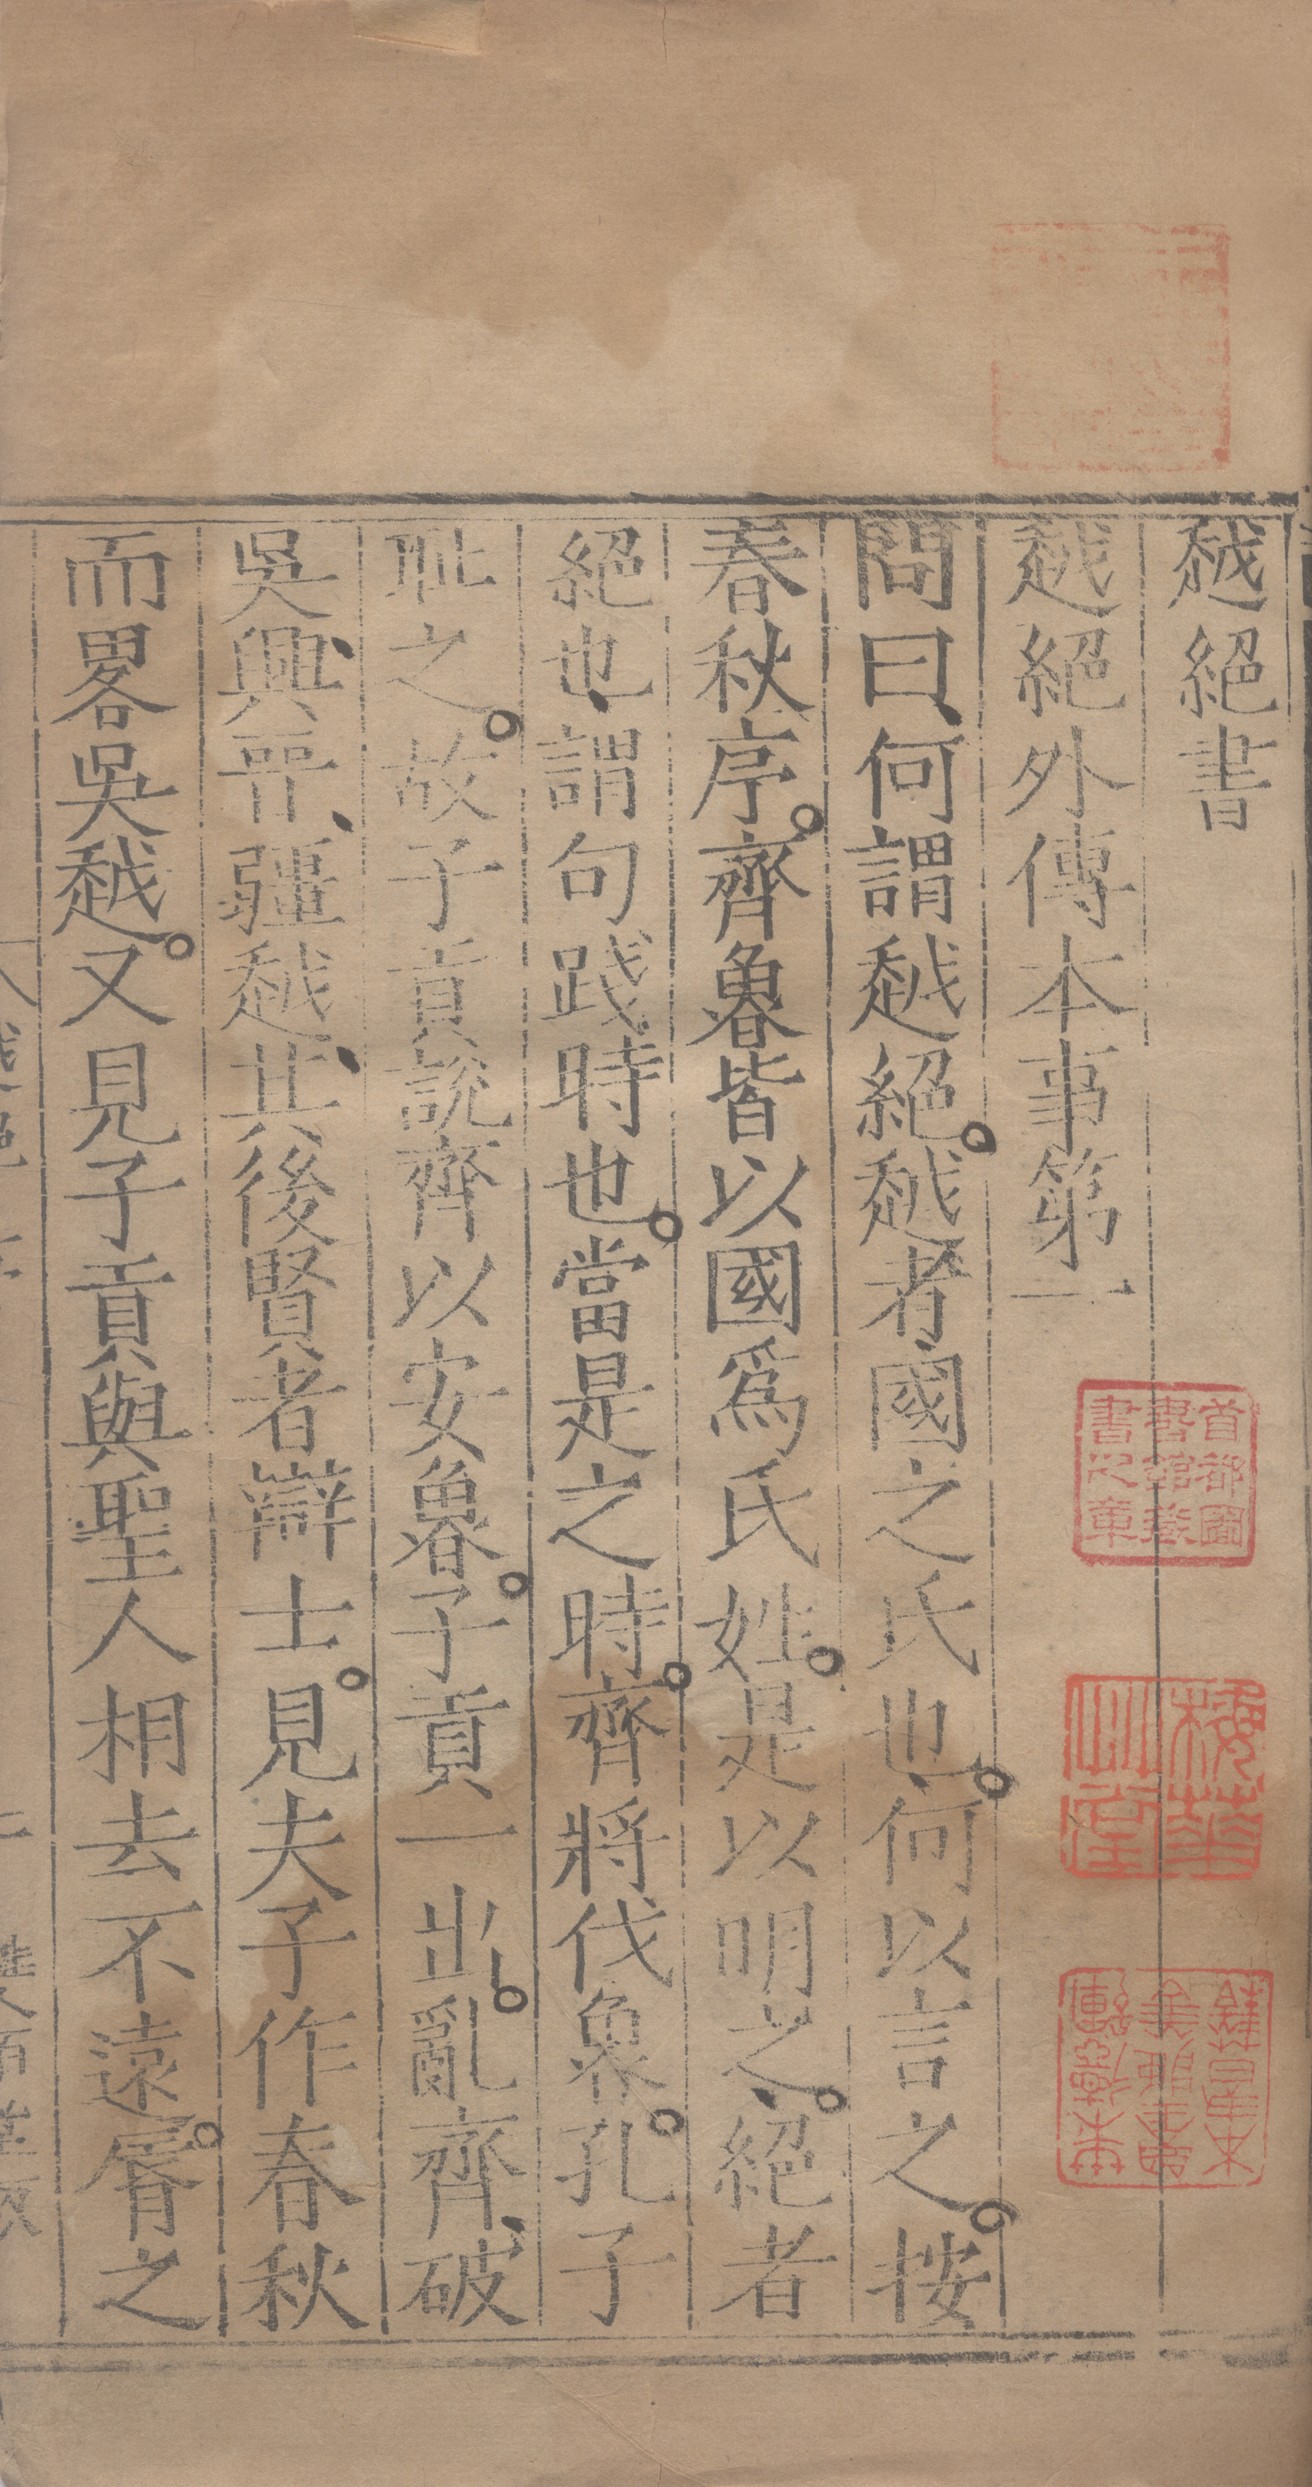 越絕書
越絕外傳本事第一
問曰何謂越絕越者國之氏也何以言之按
春秋序齊魯皆以國爲氏姓是以明之絕者
絕也謂句踐時也當是之時齊將伐魯孔子
恥之故子貢說齊以安魯子貢一出亂齊破
吳興晉疆越其後賢者辯士見夫子作春秋
而畧吳越又見子貢與聖人相去不遠脣之
首都圖
書館藏
書之章
梅華
草堂